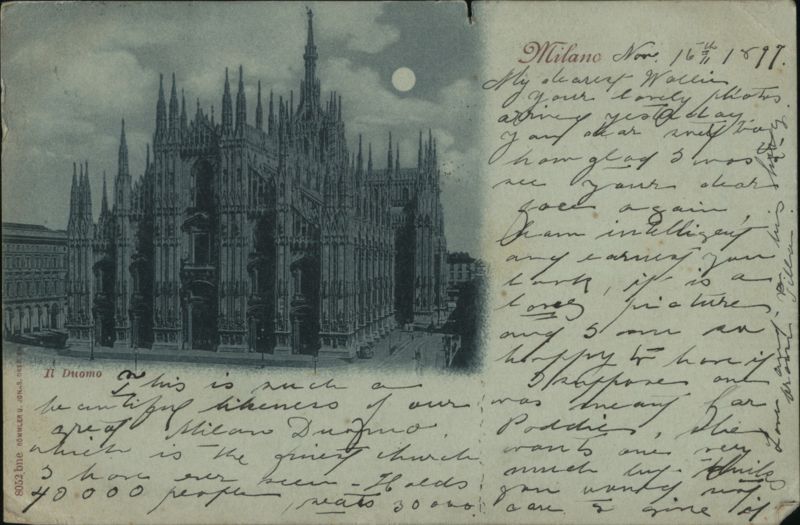 Milano Nov. 16th 1897.
My dearest Wollie
Your lovely photos
arrived yesterday.
You dear sweet boy
how glad I was to
see your dear
face again,
how intelligent
and earnest you
look, it is a
lovely picture
and I am so
happy to have it
I suppose one
was meant for
Poddie, she
wants one very
much but thinks
you would not
care I give it
Love and
from Tillie
Il Duomo
This is such a
beautiful likeness of our
great Milan Duomo,
which is the finest church
I have ever seen - Holds
40000 people, seats 30000.
8052 bne RÖMMLER U. JONAS. DRESDEN